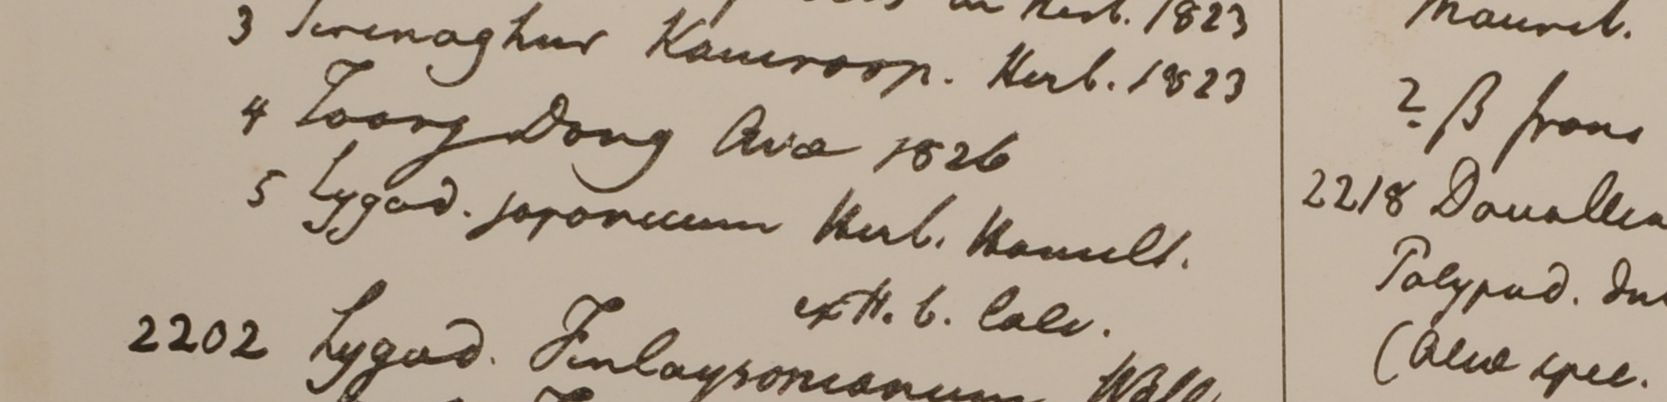 Herb. 1823
3 Srinaghur Kamroop. Herb. 1823
4 Toong Dong Ava 1826
5 Lygod. japonicum Herb. Hamilt.
ex H. b. Calc.
2202 Lygod. Finlaysonianum Wall
Maurit.
? β frons
2218 Davallia
Polypod.
(Alia spec.